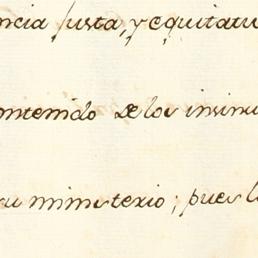 ncia justa, y equitatu
ontenido de los insinu
su ministerio; pues l